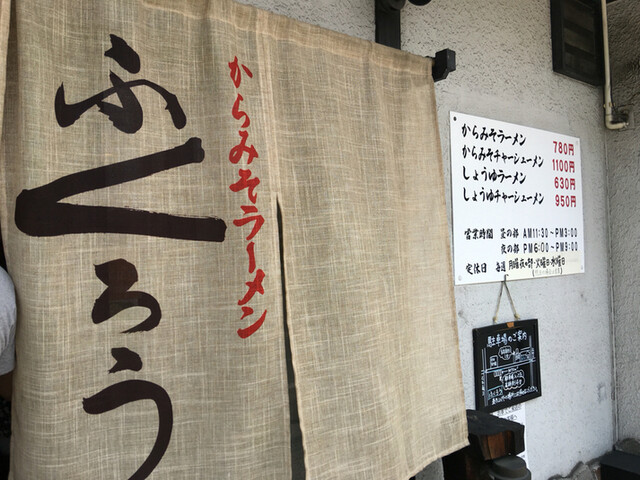 ふくろう
からみそラーメン
からみそラーメン 780円
からみそチャーシューメン 1100円
しょうゆラーメン 630円
しょうゆチャーシューメン 950円
営業時間 昼の部 AM11:30~PM3:00
夜の部 PM6:00~PM9:00
定休日 毎週 月曜夜の部・火曜日・水曜日
駐車場のご案内